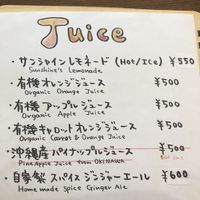 Juice
・サンシャインレモネード (Hot/Ice) ¥550
Sunshine's Lemonade
・有機オレンジジュース ¥500
Organic Orange Juice
・有機アップルジュース ¥500
Organic Apple Juice
・有機キャロットオレンジジュース ¥500
Organic Carrot & Orange Juice
・沖縄産パイナップルジュース ¥500
Pineapple Juice from OKINAWA
・自家製スパイスジンジャーエール ¥600
Home made Spice Ginger Ale